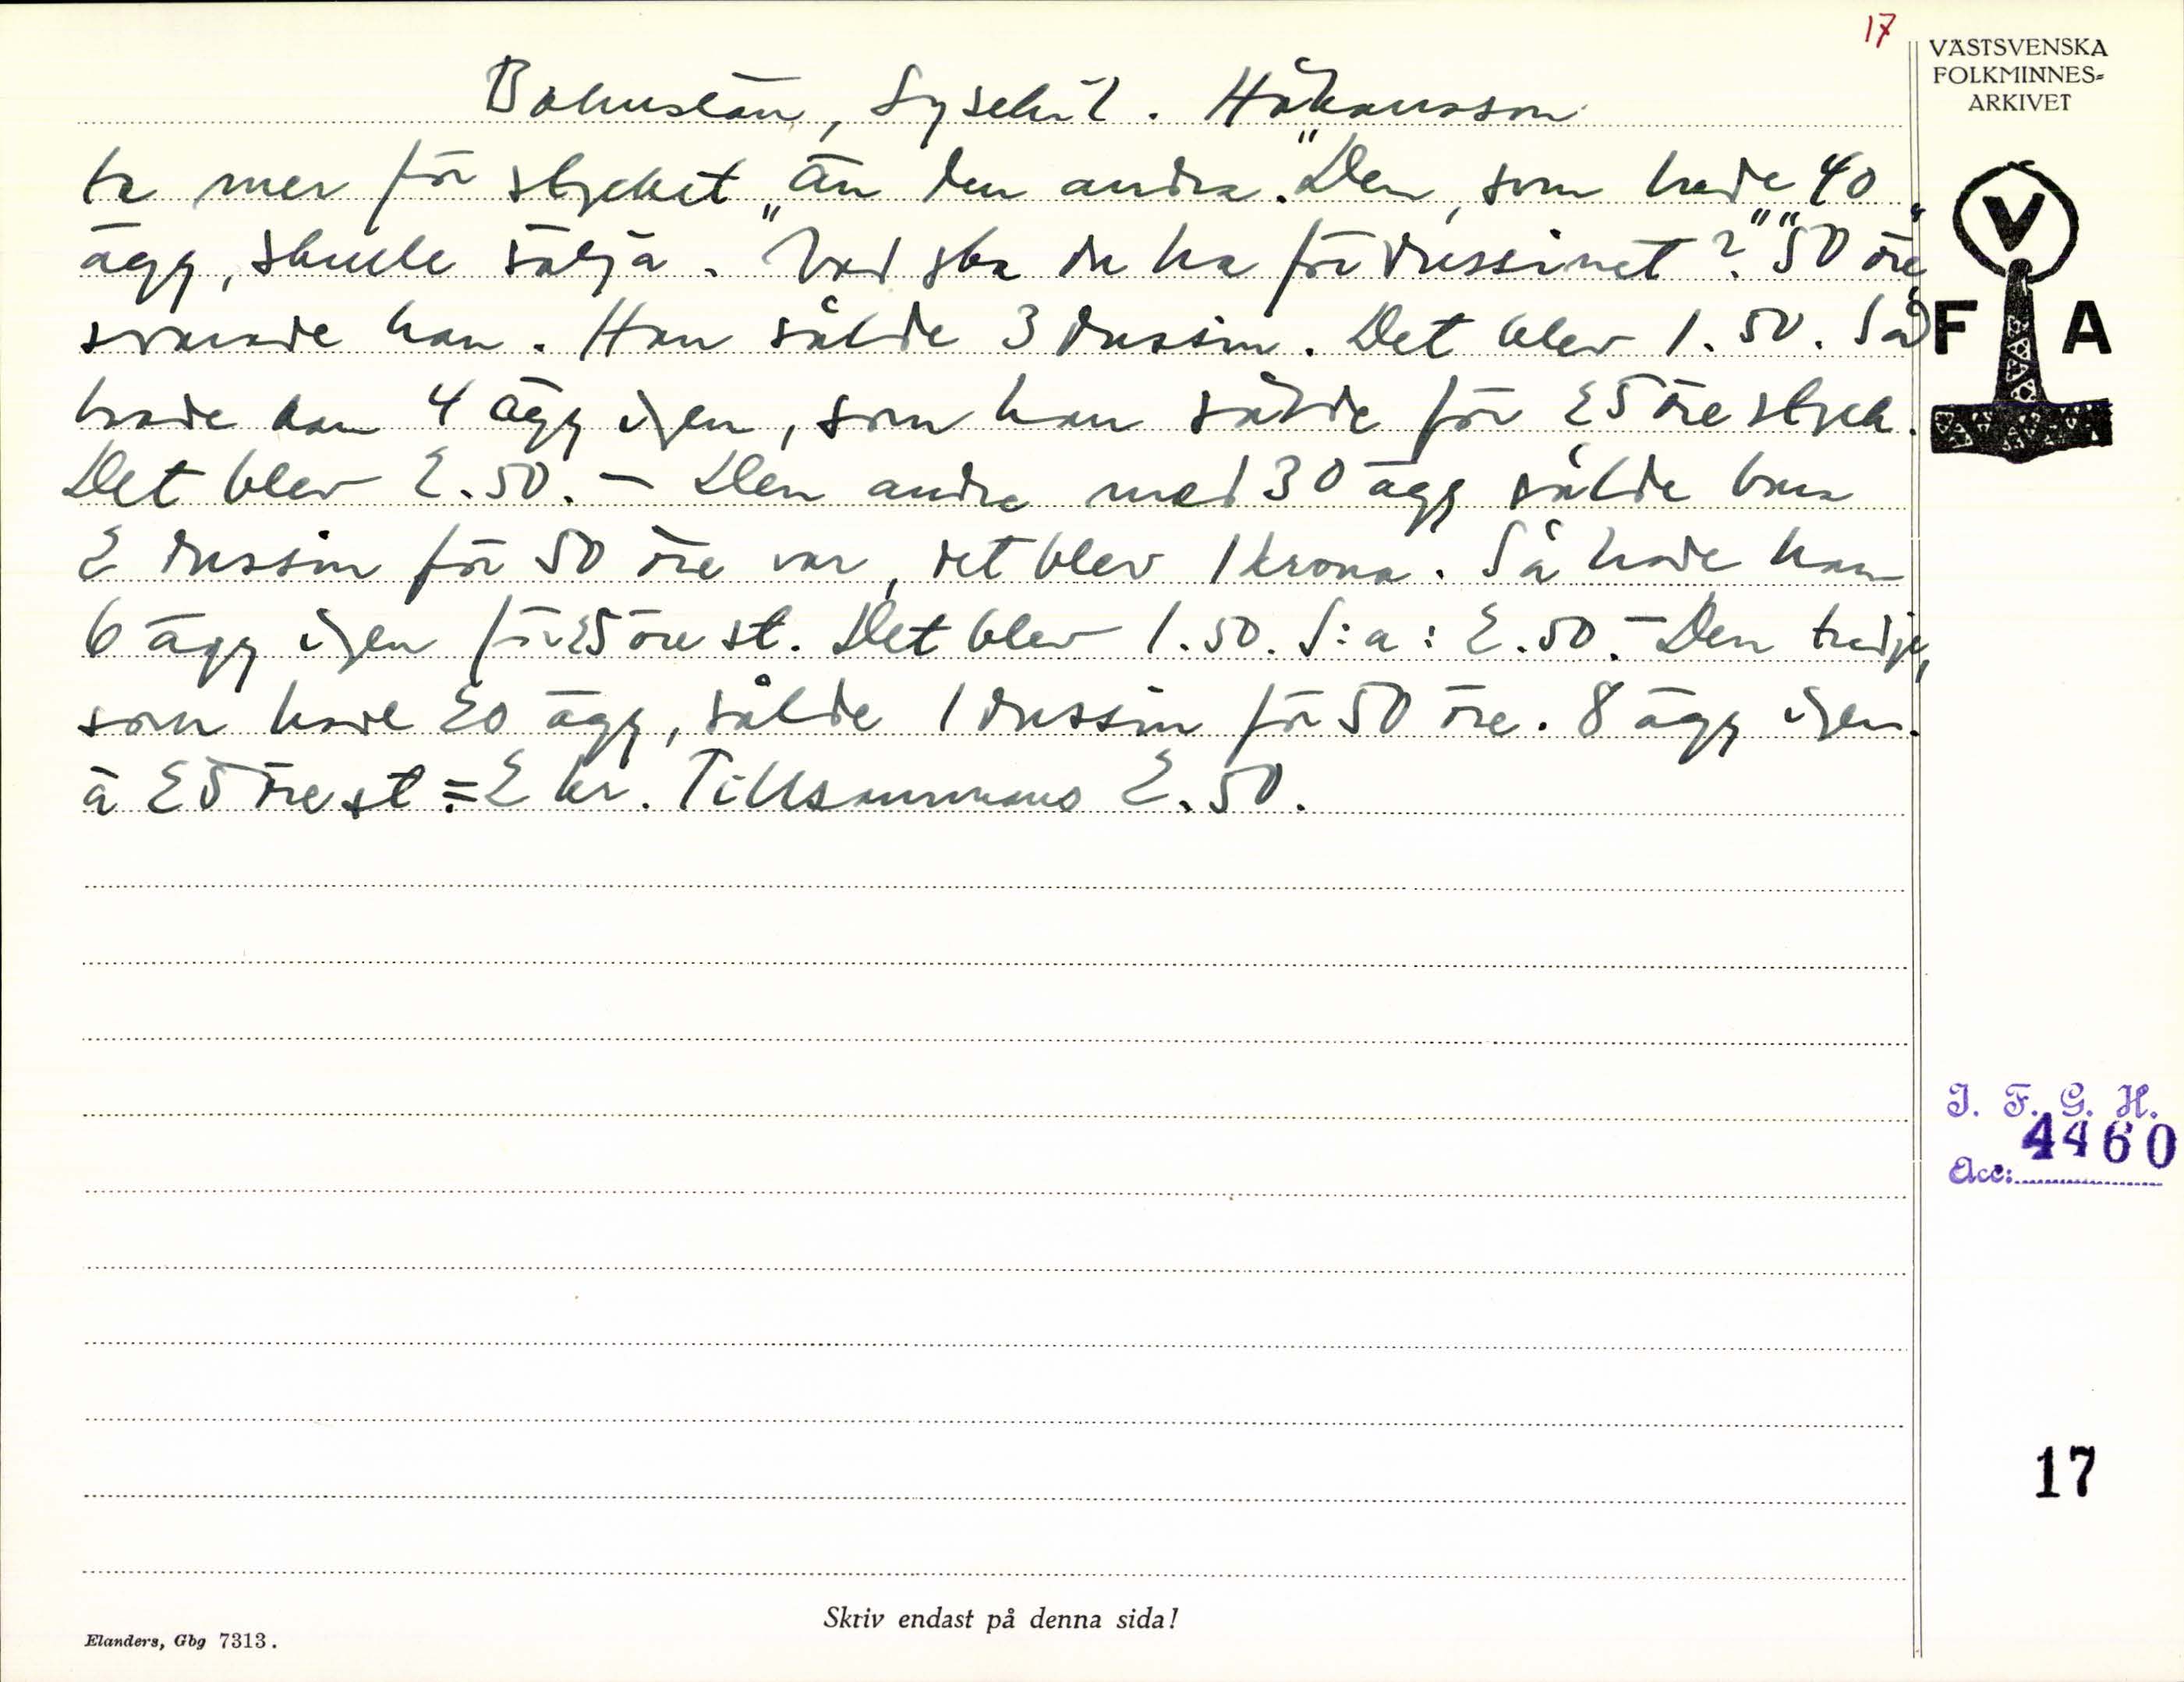 17
VÄSTSVENSKA
FOLKMINNES-
ARKIVET
Bohuslän, Lysekil. Håkansson
ta mer för stycket än den andra." Den, som hade 40
ägg, skulle sälja. "Vad ska du ha för dussinet?" "50 öre"
svarade han. Han sålde 3 dussin. Det blev 1.50. Så
hade han 4 ägg igen, som han sålde för 25 öre styck.
Det blev 2.50. – Den andra med 30 ägg sålde bara
2 dussin för 50 öre var, det blev 1 krona. Så hade han
6 ägg igen för 25 öre st. Det blev 1.50. S:a: 2.50. – Den tredje,
som hade 20 ägg, sålde 1 dussin för 50 öre. 8 ägg igen
à 25 öre st = 2 kr. Tillsammans 2.50.
V
F A
I. F. G. H.
4460
Acc:
17
Skriv endast på denna sida!
Elanders, Gbg 7313.